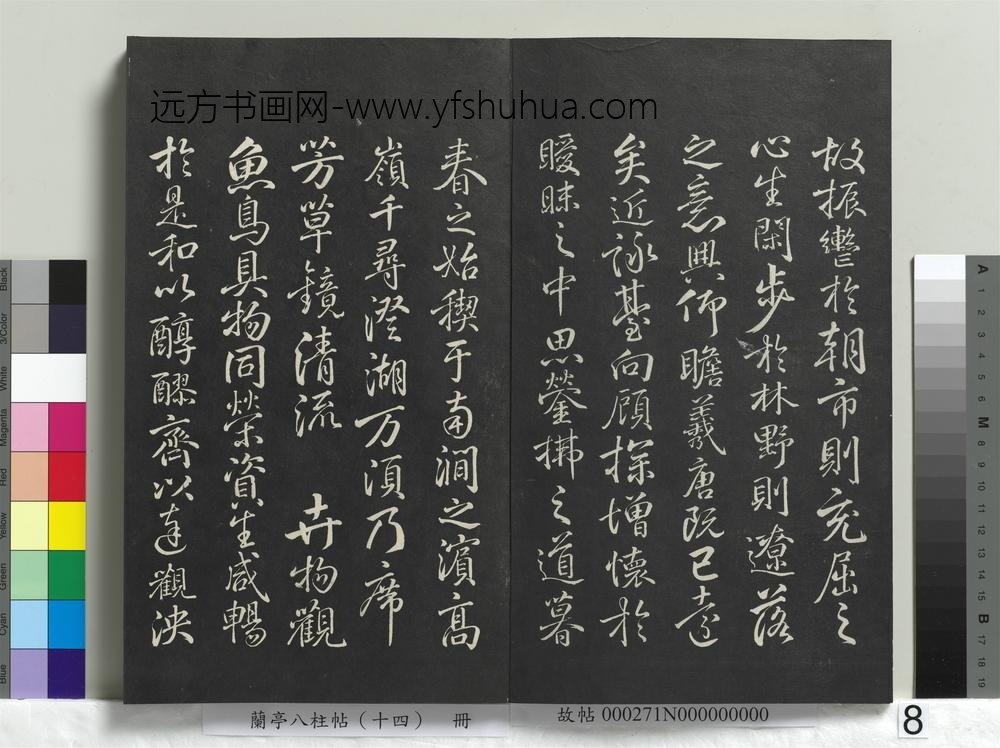 远方书画网-www.yfshuhua.com
故振轡於朝市則充屈之
心生閑步於林野則遼落
之意興仰瞻羲唐既已遠
矣近詠臺向顧探增懷於
曖昧之中思瑩拂之道暮
春之始禊于南澗之濱高
嶺千尋澄湖万頃乃席
芳草鏡清流 卉物觀
魚鳥具物同榮資生咸暢
於是和以醇醪齊以達觀泱
蘭亭八柱帖（十四） 冊
故帖 000271N000000000
8
Black
3/Color
White
Magenta
Red
Yellow
Green
Cyan
Blue
A
1
2
3
4
5
6
M
8
9
10
11
12
13
14
15
B
17
18
19